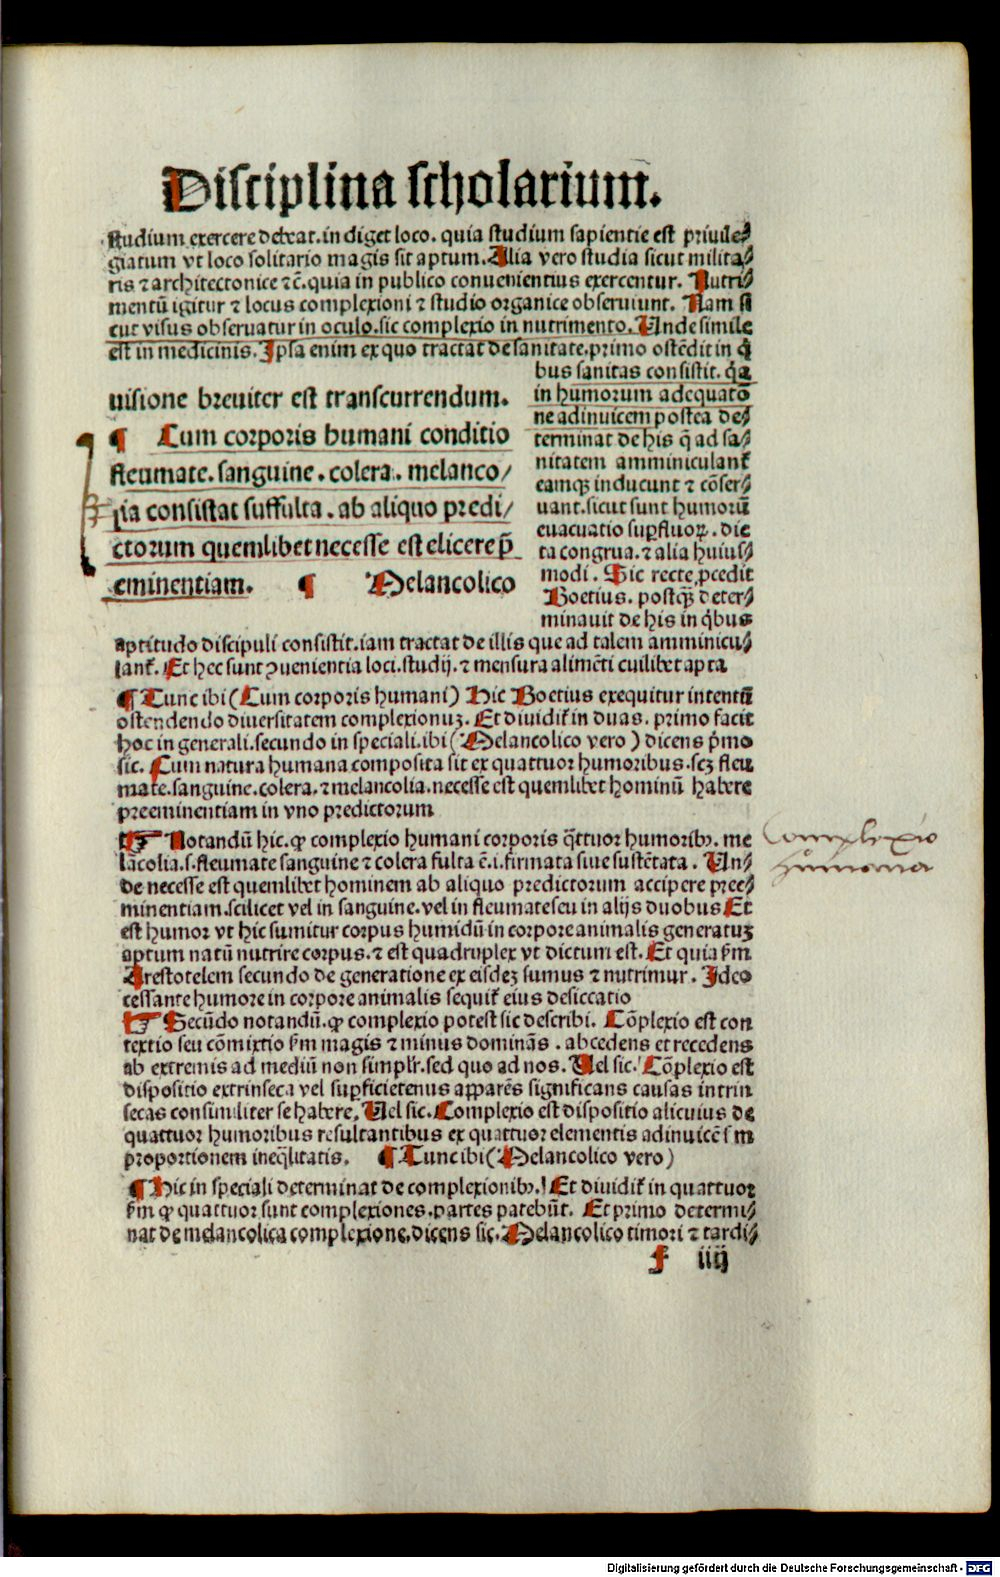 Disciplina scholarium.
studium exercere debeat. in diget loco. quia studium sapientie est priuile⸗
giatum vt loco solitario magis sit aptum. Alia vero studia sicut milita⸗
ris ⁊ architectonice ⁊c̄. quia in publico conuenientius exercentur. Nutri⸗
mentū igitur ⁊ locus complexioni ⁊ studio organice obseruiunt. Nam si
cut visus obseruatur in oculo. sic complexio in nutrimento. Unde simile
est in medicinis. Ipsa enim ex quo tractat de sanitate. primo ostēdit in q̇
bus sanitas consistit. q̇a
in humorum adequatō
ne adinuicem postea de⸗
terminat de his q̄ ad sa⸗
nitatem amminiculant᷑
eamqꝫ inducunt ⁊ cōser⸗
uant. sicut sunt humorū
euacuatio suꝑfluoꝝ. die
ta congrua. ⁊ alia huius⸗
modi. Sic recte ꝓcedit
Boetius. postqꝫ deter⸗
minauit de his in q̇bus
uisione breuiter est transcurrendum.
¶ Cum corporis humani conditio
fleumate. sanguine. colera. melanco/
lia consistat suffulta. ab aliquo predi/
ctorum quemlibet necesse est elicere p̄
eminentiam. ¶ Melancolico
aptitudo discipuli consistit. iam tractat de illis que ad talem amminicu⸗
lant᷑. Et hec sunt ꝯuenientia loci. studij. ⁊ mensura alimēti cuilibet apta
¶ Tunc ibi (Cum corporis humani) Hic Boetius exequitur intentū
ostendendo diuersitatem complexionuꝫ. Et diuidit᷑ in duas. primo facit
hoc in generali. secundo in speciali. ibi (Melancolico vero) dicens p̄mo
sic. Cum natura humana composita sit ex quattuor humoribus. scꝫ fleu
mate. sanguine. colera. ⁊ melancolia. necesse est quemlibet hominū habere
preeminentiam in vno predictorum
☞ Notandū hic. ꝙ complexio humani corporis q̄ttuor humoribꝫ. me
lācolia. s. fleumate sanguine ⁊ colera fulta ē. i. firmata siue sustētata. Un⸗
de necesse est quemlibet hominem ab aliquo predictorum accipere pree⸗
minentiam. scilicet vel in sanguine. vel in fleumate seu in alijs duobus Et
est humor vt hic sumitur corpus humidū in corpore animalis generatuꝫ
aptum natū nutrire corpus. ⁊ est quadruplex vt dictum est. Et quia ẜm
Arestotelem secundo de generatione ex eisdeꝫ sumus ⁊ nutrimur. Ideo
cessante humore in corpore animalis sequit᷑ eius desiccatio
☞ Secūdo notandū. ꝙ complexio potest sic describi. Cōplexio est con
textio seu cōmixtio ẜm magis ⁊ minus dominās. abcedens et recedens
ab extremis ad mediū non simplr̄. sed quo ad nos. Uel sic. Cōplexio est
dispositio extrinseca vel suꝑficietenus apparēs significans causas intrin
secas consimiliter se habere. Uel sic. Complexio est dispositio alicuius de
quattuor humoribus resultantibus ex quattuor elementis adinuicē ẜm
proportionem ineq̄litatis. ¶ Tunc ibi (Melancolico vero)
¶ Hic in speciali determinat de complexionibꝫ. Et diuidit᷑ in quattuor
ẜm ꝙ quattuor sunt complexiones. partes patebūt. Et primo determi⸗
nat de melancolica complexione. dicens sic. Melancolico timori ⁊ tardi⸗
f iiij
Complexio
humana
Digitalisierung gefördert durch die Deutsche Forschungsgemeinschaft - DFG